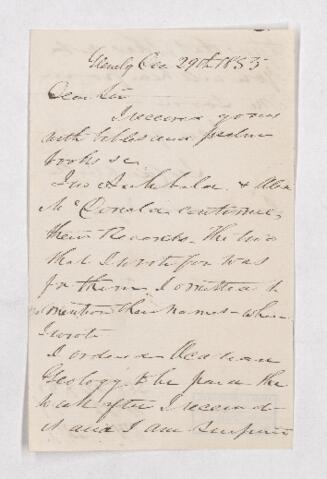 Dec 29th 1885
Dear Sir
I received yours
with bibles and psalm
books &c.
Jno Archibald & Alex
McDonald continue
their Records. The two
that I wrote for was
for them I omitted to
mention their names when
I wrote
I ordered Acadian
Geology to be paid the
after I received
it and I am